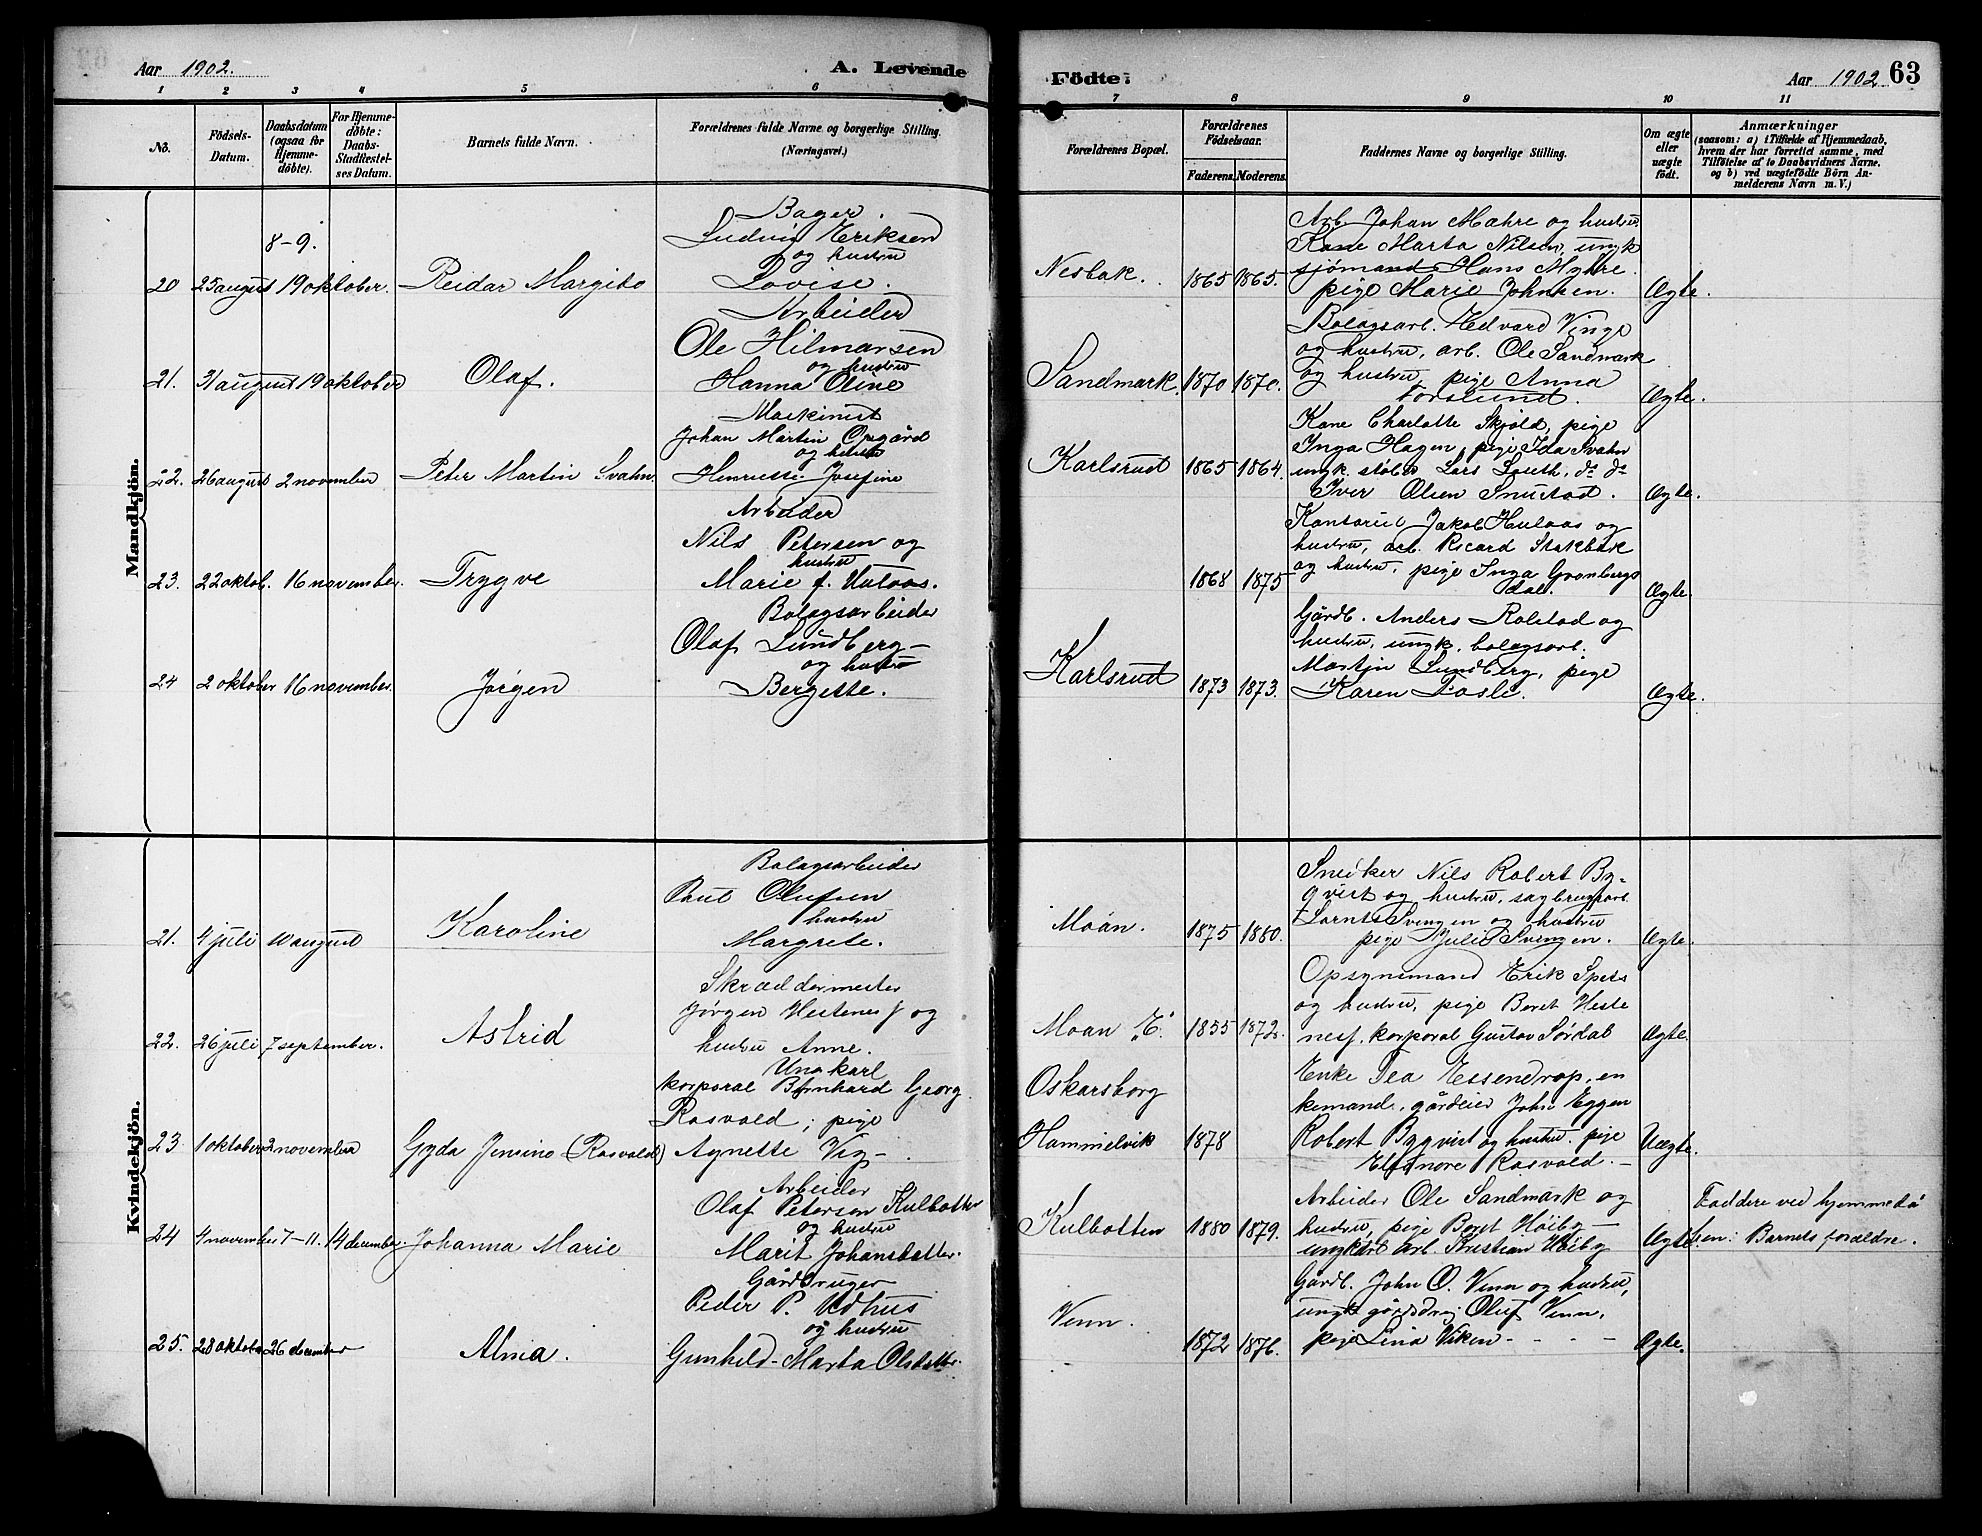 Aar 1902.
A. Levende
Födte:
Aar 1902
63
1 2 3 4 5 6 7 8 9 10 11
No.
Födsels-
Datum.
Daabsdatum
(ogsaa for
Hjemme-
døbte).
For Hjemme-
døbte:
Daabs-
Stadfæstel-
ses Datum.
Barnets fulde Navn.
Forældrenes fulde Navne og borgerlige Stilling.
(Næringsvei.)
Forældrenes Bopæl.
Forældrenes
Födselsaar.
Faderens. Moderens.
Faddernes Navne og borgerlige Stilling.
Om ægte
eller
uægte
født.
Anmærkninger
(saasom: a) i Tilfælde af Hjemmedaab,
hvem der har forrettet samme, med
Tilføielse af to Daabsvidners Navne,
og b) ved uægtefødte Börn An-
melderens Navn m. V.)
Mandkjön.
8-9.
20 25 august 19 oktober. Reidar Margido
Bager.
Ludvig Eriksen
og hustru
Lovise.
Nesbak. 1865 1865.
Arb. Johan Mæhre og hustru.
Kone Marta Nilsen, ungk
sjömand Hans Myhre.
pige Marie Johnsen.
Ægte.
21. 31 august 19 oktober Olaf.
Arbeider
Ole Hilmarsen
og hustru
Hanna Oline
Sandmark. 1870 1870.
Bolagsarb. Hedvard Vinge
og hustru, arb. Ole Sandmark
og hustru, pige Anna
Forslund.
Ægte.
22. 26 august 2 november Peter Martin Svahn.
Maskinist
Johan Martin Opgård
og hustru
Henriette Josefine
Karlsrud 1865 1864.
Kone Charlotte Skjöld, pige
Inga Hagen, pige Ida Svahn
ungk. støber Lars Loseth, do do
Iver Olsen Snustad.
Ægte.
23. 22 oktob. 16 november. Trygve
Arbeider
Nils Petersen og
hustru
Marie f. Hulaas.
1868 1875
Kontorist Jakob Hulaas og
hustru, arb. Ricard Stokbak
og hustru, pige Inga Gronbergs
dal.
Ægte.
24 2 oktober 16 november. Jørgen
Bolagsarbeider
Olaf Lundberg
og hustru
Bergette.
Karlsrud 1873 1873.
Gårdb. Anders Rolstad og
hustru, ungk. bolagsarb.
Martin Lundberg, pige
Karen Fosli.
Ægte.
Kvindekjön.
21. 4 juli 10 august Karoline
Bolagsarbeider
Paul Olufsen
hustru
Margrete.
Moan. 1875 1880.
Snedker Nils Robert By-
qvist og hustru, sagbrugsarb.
Svingen og hustru
pige Julie Svingen.
Ægte.
22. 26 juli 7 september. Astrid
Skræddermester
Jørgen Hestenes og
hustru Anne.
Moan "E." 1855 1872.
Opsynsmand Erik Spets
og hustru, pige Beret Heste
nes, korporal Gustav Sördal
Ægte.
23. 1 oktober 2 november Gyda Jensine (Rosvold)
Ungkarl
korporal Bernhard Georg
Rosvold; pige
Agnette Vig -.
Oskarsborg
Hammelvik 1878
Enke Tea Essendrop, en
kemand, gårdeier John Eggen
Robert Byqvist og hustru. pige
Elionore Rosvold. -
Uægte.
24 4 november 7-11. 14 december. Johanna Marie
Arbeider
Olaf Peterson Kulbotten
og hustru
Marit Johansdatter.
Kulbotten 1880 1879.
Arbeider Ole Sandmark og
hustru, pige Beret Höiby -
ungkarl arb. Kristian Höiby
Ægte.
Faddere ved hjemmedå
ben: Barnets forældre.
25. 28 oktober 26 december Alma.
Gårdbruger
Peder P. Udhus
og hustru
Gunhild-Marta Olsdatter.
Venn. 1872 1876.
Gårdb. John O. Venn og hustru,
ungk gårddrg Oluf Venn.
pige Lina Viken - - - -
Ægte.